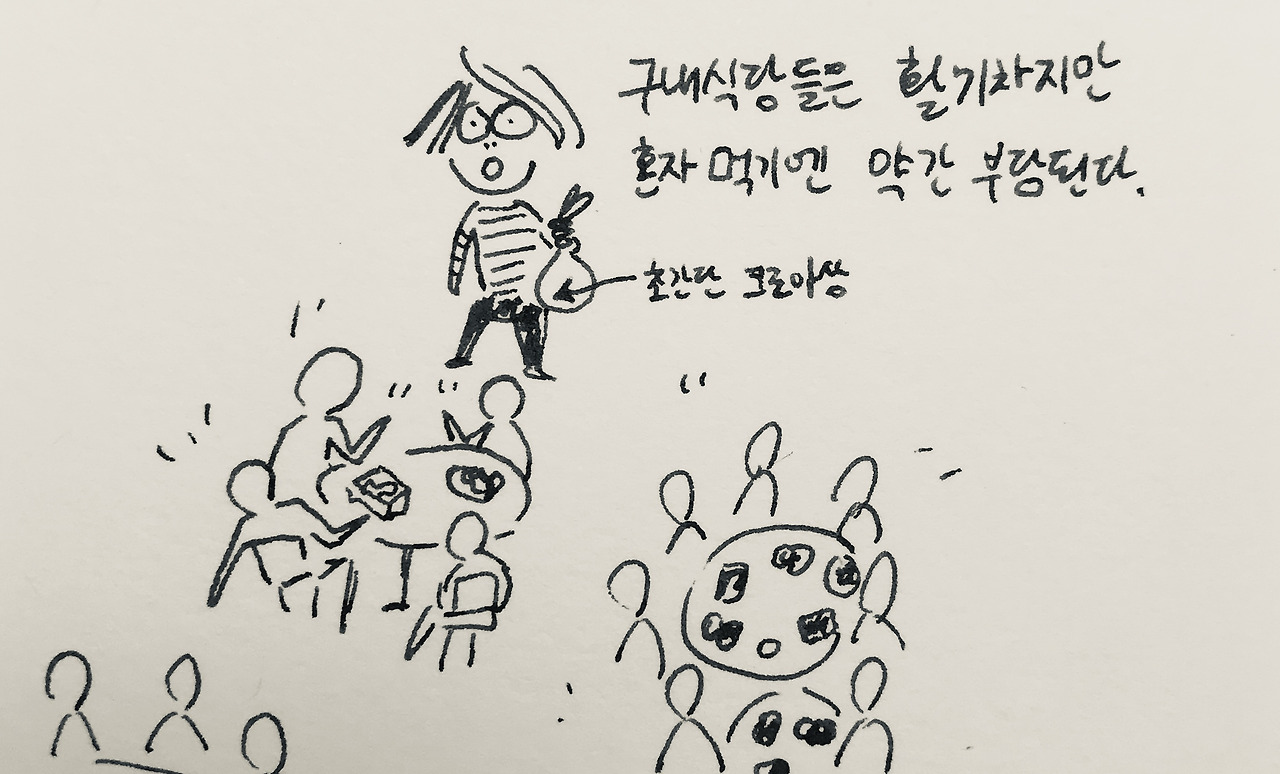 구내식당들은 활기차지만
혼자 먹기엔 약간 부담된다.
초간단 크로아쌍